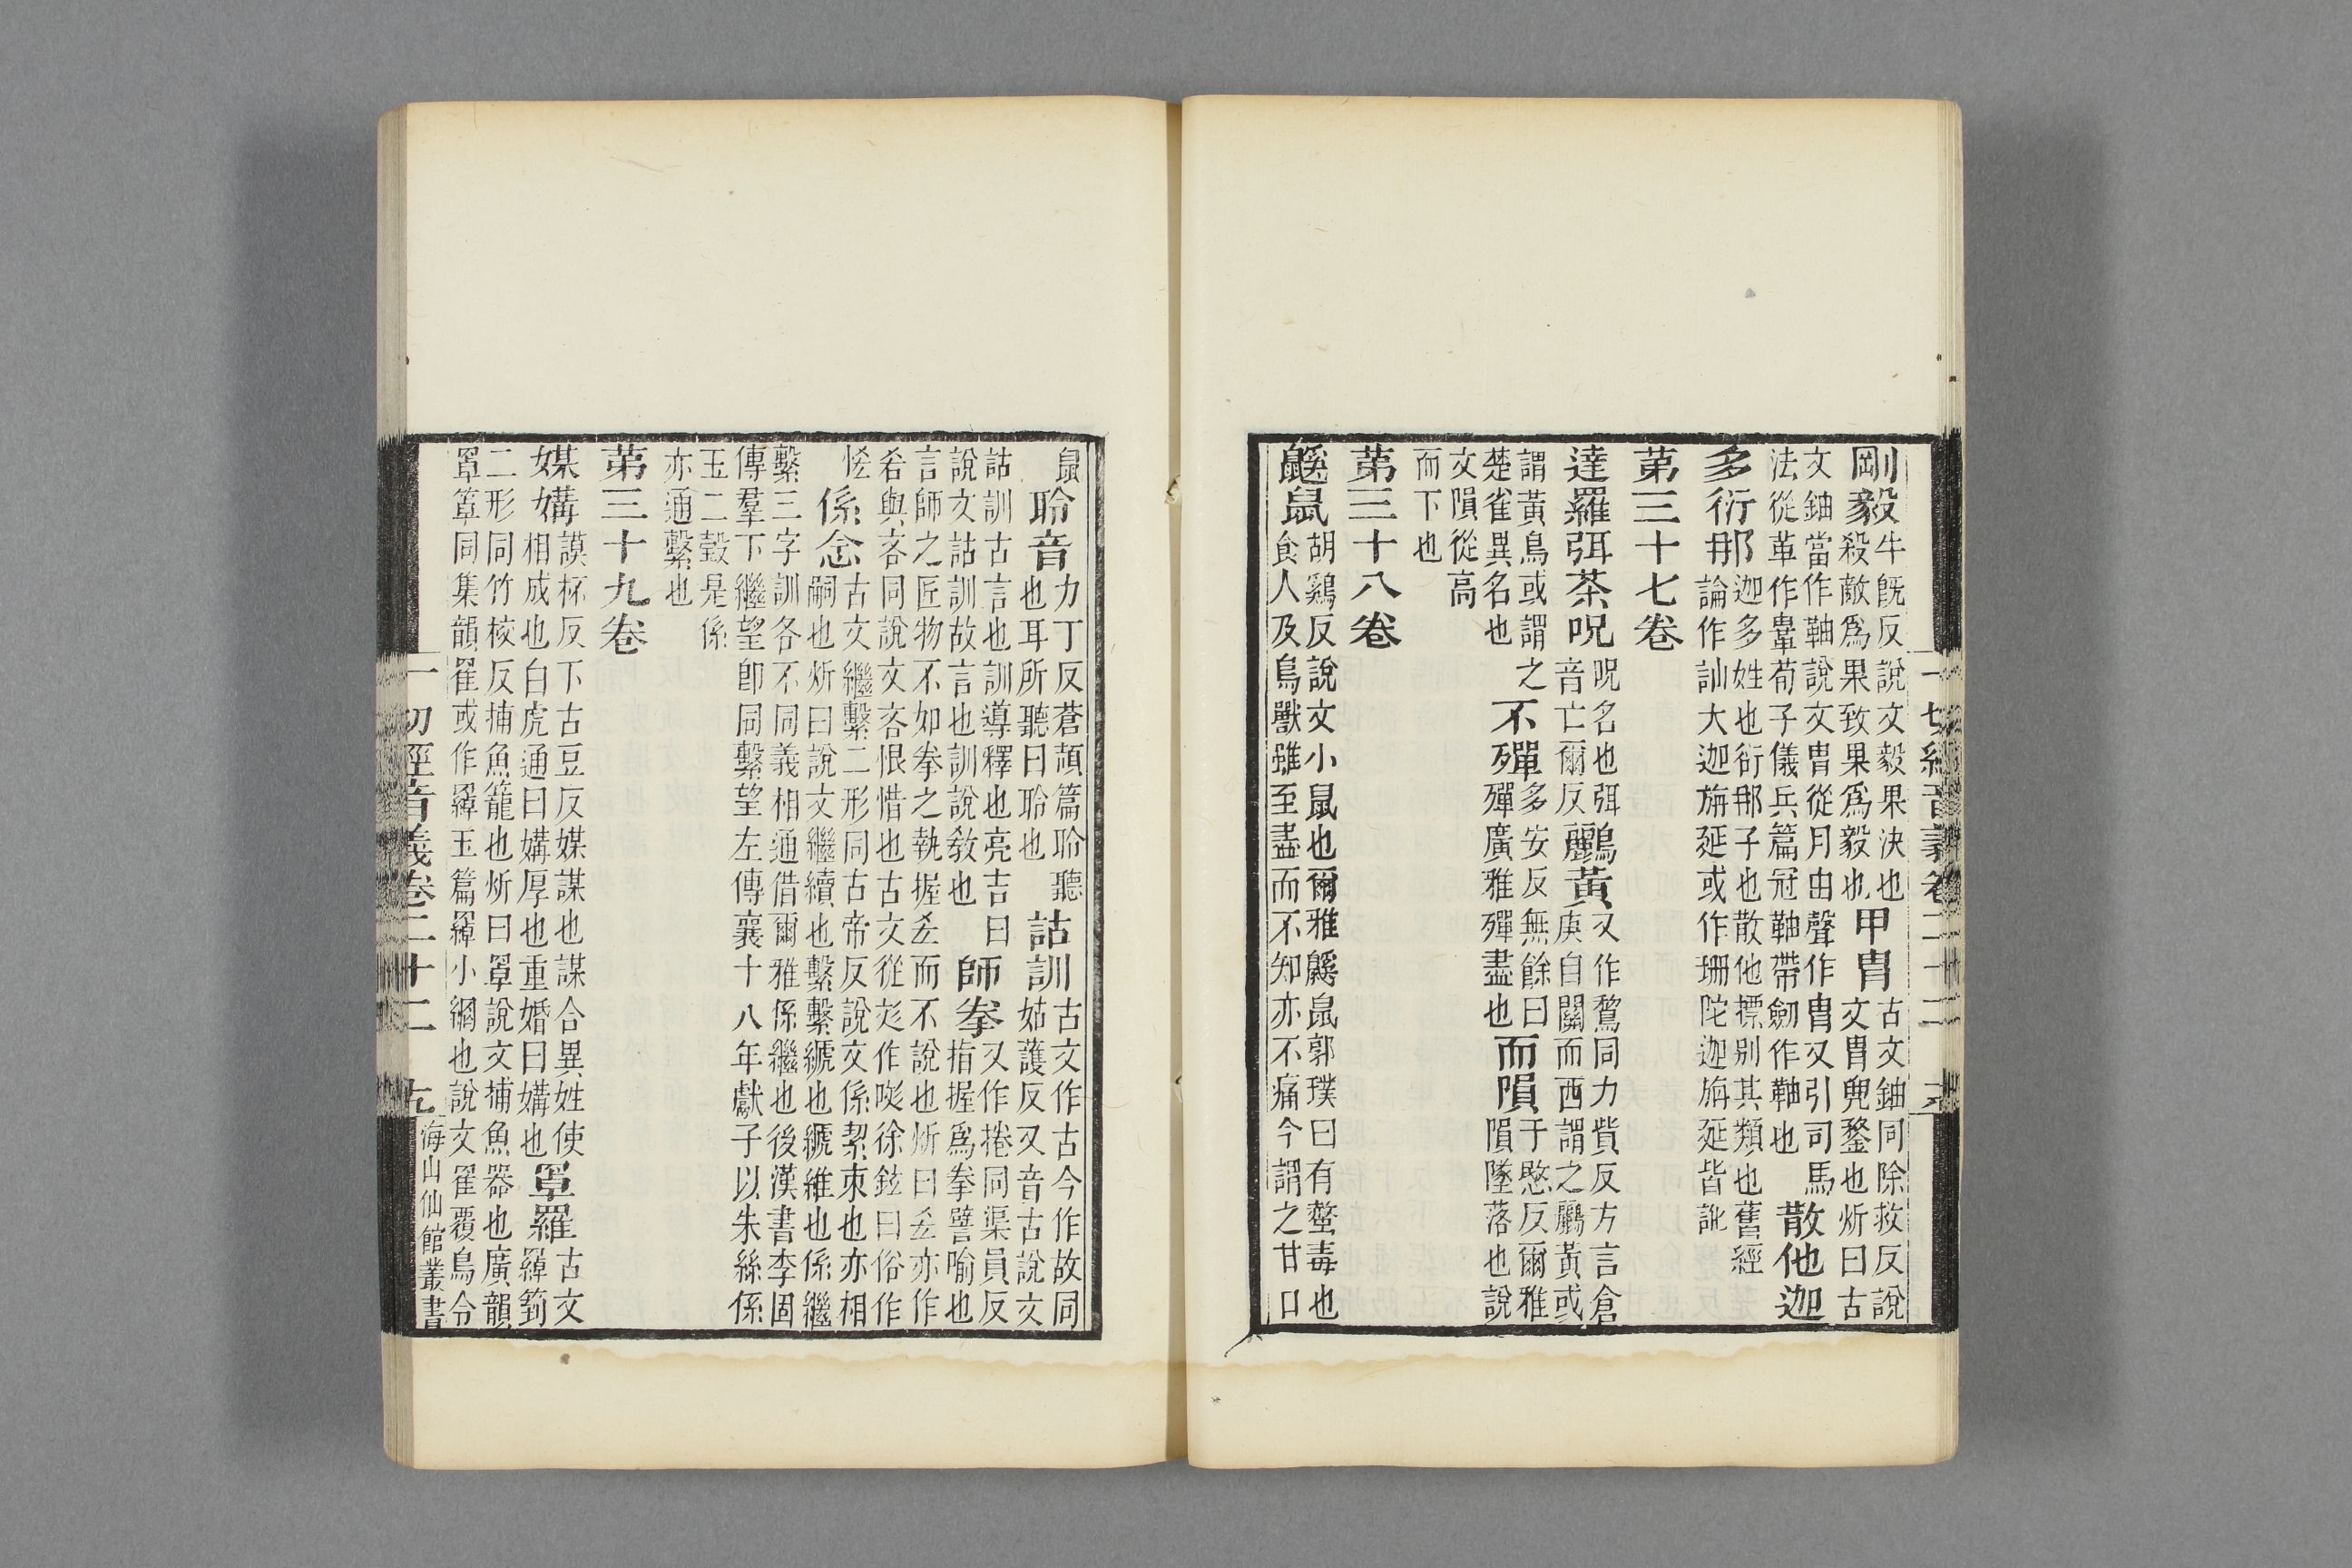 剛毅牛旣反說文毅果決也殺敵爲果致果爲毅也甲冑古文鈾同除救反說文冑兜鍪也炘曰古
文鈾當作軸說文冑從月由聲作冑又引司馬法從革作䩜荀子儀兵篇冠軸帶劒作軸也散他迦
多衍那迦多姓也衍那子也散他摽別其類也舊經論作訕大迦旃延或作珊陀迦旃延皆訛
第三十七卷
達羅弭荼呪呪名也弭音亡爾反鸝黃又作鶖同力貲反方言倉庚自關而西謂之鸝黃或
謂黃鳥或謂之楚雀異名也不殫多安反無餘曰殫廣雅殫盡也而隕于愍反爾雅隕墜落也說
文隕從高而下也
第三十八卷
鼷鼠胡鷄反說文小鼠也爾雅鼷鼠郭璞曰有螫毒也食人及鳥獸雖至盡而不知亦不痛今謂之甘口
一切經音義卷二十二
鼠聆音力丁反蒼頡篇聆聽也耳所聽曰聆也詁訓古文作古今作故同姑護反又音古說文
詁訓古言也訓導釋也亮吉曰說文詁訓故言也訓說敎也師拳又作捲同渠員反指握爲拳譬喻也
言師之匠物不如拳之執握㐫而不說也炘曰㐫亦作㕡與吝同說文吝恨惜也古文從彣作㖁徐鉉曰俗作
恡係念古文繼繫二形同古帝反說文係絜束也亦相嗣也炘曰說文繼續也繫繫䋎也䋎維也係繼
繫三字訓各不同義相通借爾雅係繼也後漢書李固傳羣下繼望卽同繫望左傳襄十八年獻子以朱絲係
玉二瑴是係亦通繫也
第三十九卷
媒媾謨杯反下古豆反媒謀也謀合異姓使相成也白虎通曰媾厚也重婚曰媾也罩羅古文羄𥬠
二形同竹校反捕魚籠也炘曰罩說文捕魚器也廣韻罩箄同集韻䍜或作羄玉篇羄小網也說文䍜覆鳥令
一切經音義卷二十二 九 海山仙館叢書